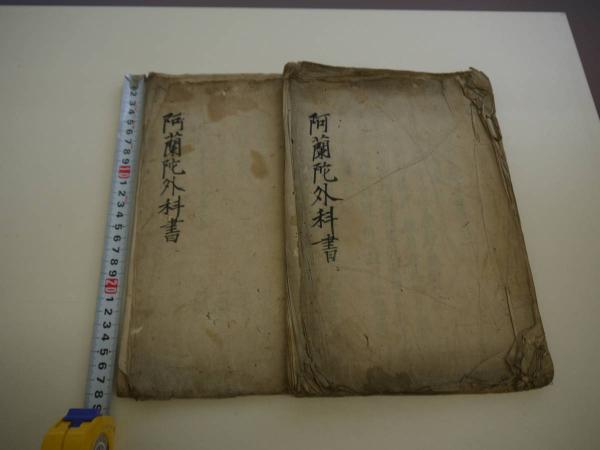 阿蘭陀外科書
阿蘭陀外科書
2 3 4 5 6 7 8 9 10 1 2 3 4 5 6 7 8 9 20 1 2 3 4 5 6 7 8 9